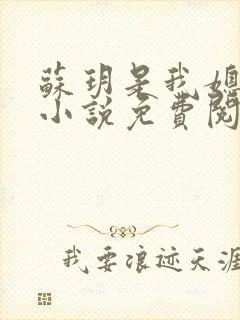 蘇玥是我媳
小說免費閱
我要浪迹天涯